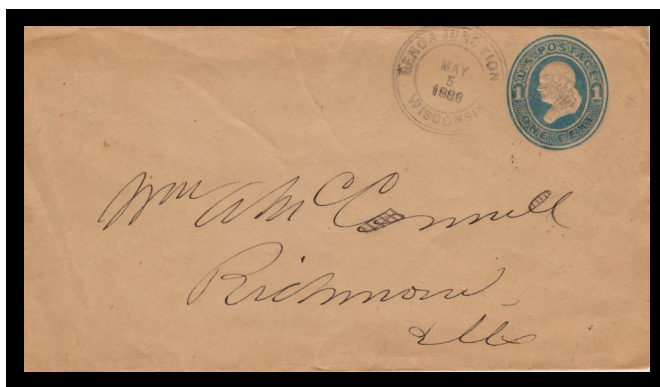 GENOA JUNCTION
MAY
5
WISCONSIN
U.S. POSTAGE
1 1
ONE CENT
Wm A McConnell
Richmond
Ills